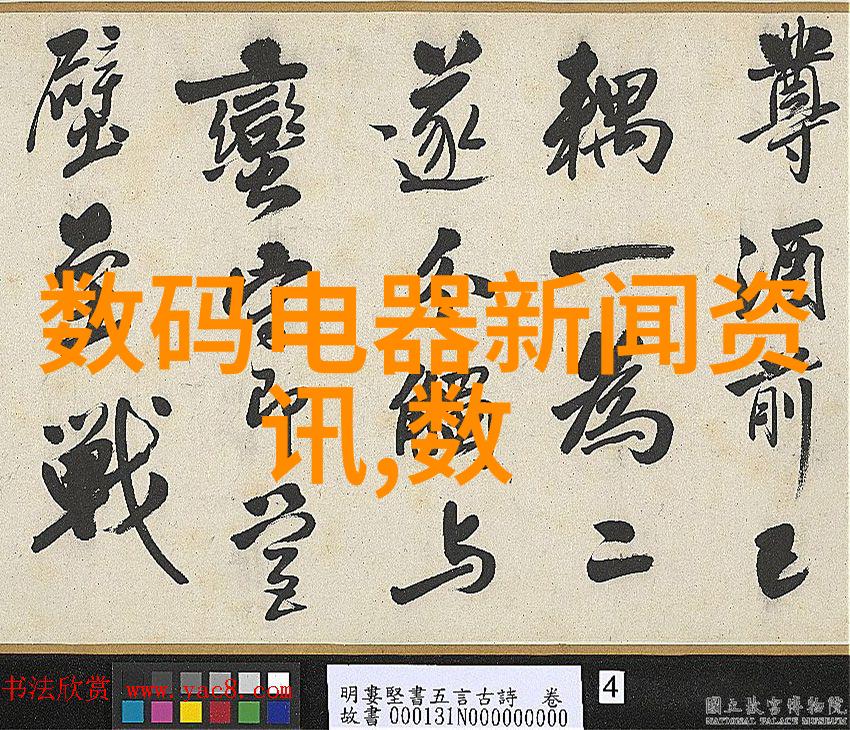 尊酒前已
耦一為二
遂觸与
蠻即營
壁戰
数码电器新闻资
讯,数
书法欣赏 www.yac8.com
明婁堅書五言古詩 卷
故書000131N000000000
4
國立故宮博物院
NATIONAL PALACE MUSEUM